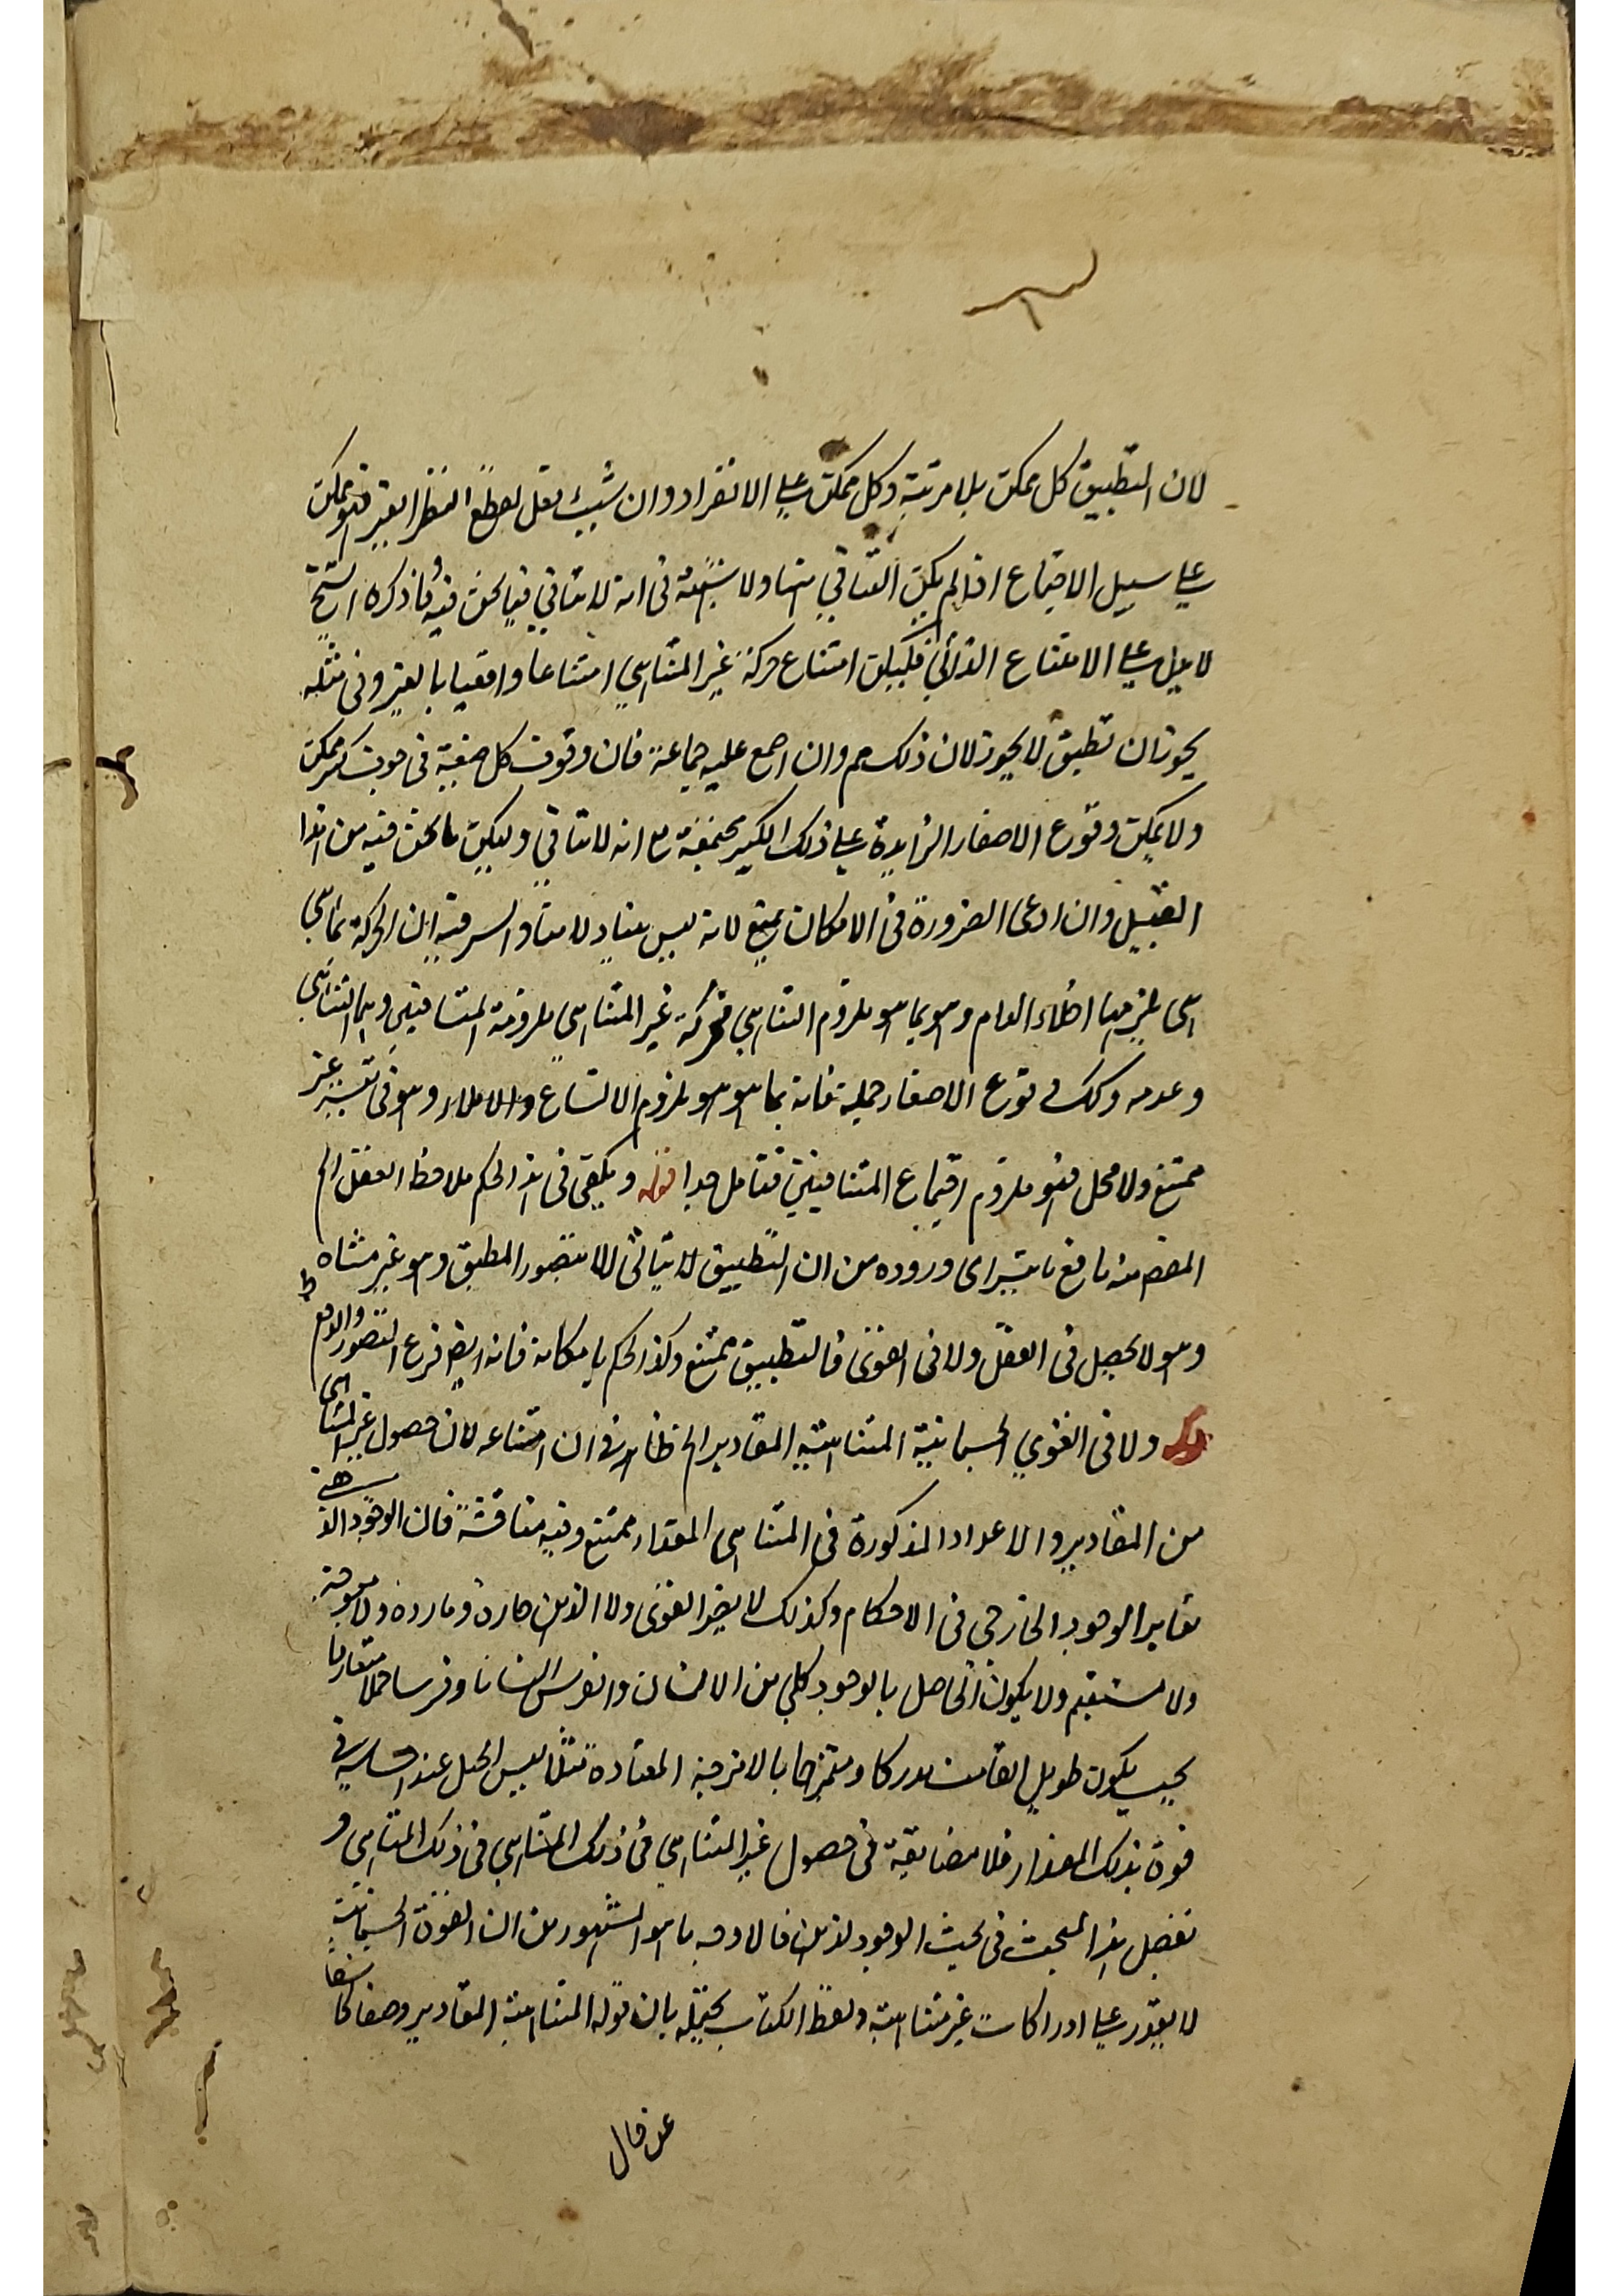 لان التطبيق كل ممكن بلا مرتبة وكل ممكن على الانفراد وان شيت فقل لقطع النظر الغير فهو ممكن
على سبيل الاجتماع اذا لم يكن التنافي بينها ولا شبهة فى انه لا تنافي فيما نحن فيه وما ذكره الشيخ
لا يدل على الامتناع الذاتي فليكن امتناع حركة غير المتناهي امتناعا واقعيا بالغير وفى مثله
يجوز ان تطبق لا يجوز لان ذلك مم وان اجمع عليه جماعة فان وقوف كل صغيرة فى جوف كبير ممكن
ولا يمكن وقوع الاصغار الزايدة على ذلك الكبير مجتمعة مع انه لا تنافي وليكن ما نحن فيه من هذا
القبيل وان ادعى الضرورة فى الامكان يمنع لانه ليس ببناء السر فيه ان الحركة بما هي
هي يلزمها اخلاء العام وهو بما هو ملزوم التناهي فحركة غير المتناهي ملزومة المتنافيين وهما التناهي
وعدمه وكك وقوع الاصغار جملة فانه بما هو هو ملزوم الاتساع والاملاء وهو فى غير
ممتنع ولا محل فهو ملزوم اجتماع المتنافيين فتامل جدا قوله ويكفى فى هذا الحكم ملاحظة العقل الخ
المقص منه دفع ما يترائ وروده من ان التطبيق لا يتاتى الا بتصور المطبق وهو غير متناه
وهو لا يحصل فى العقل ولا فى القوى فالتطبيق ممتنع وكذا الحكم بامكانه فانه ايضا فرع التصور والدفع ظ
قوله ولا فى القوي الجسمانية المتناهية المقادير الخ ظاهره ان امتناعه لان حصول غير المتناهى
من المقادير والاعداد المذكورة فى المتناهى المقدار ممتنع وفيه مناقشة فان الوجود الذهنى
يغاير الوجود الخارجى فى الاحكام وكذلك لا يصير القوى ولا الذهن حارة وباردة ولا معوجة
ولا مستقيم ولا يكون الحاصل بالوجود كلي من الانسان والفرس انسانا وفرسا حملا متعارفا
بحيث يكون طويل القامت مدركا وممتزجا بالامزجة المعتادة مثلا ليس الجبل عند ارتسامه فى
قوة بذلك المقدار فلا مضايقة فى حصول غير المتناهي فى ذلك المتناهي فى ذلك المتناهي و
تفصيل هذا المبحث فى بحث الوجود الذهن فالاوجه ما هو المشهور من ان القوة الجسمانية
لا يقدر على ادراكات غير متناهية ولفظ الكتاب يحتمله بان قوله المتناهية المقادير وصفا كاشفا